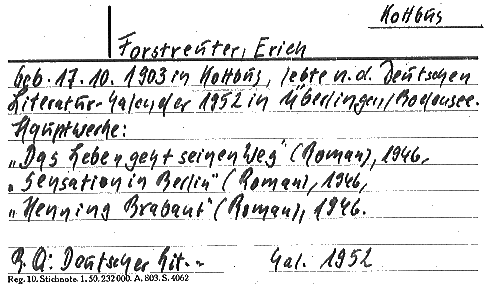 Kottbus
Forstreuter, Erich
geb. 17. 10. 1903 in Kottbus, lebte n. d. Deutschen
Literatur-Kalender 1952 in Überlingen/Bodensee.
Hauptwerke:
„Das Leben geht seinen Weg" (Roman), 1946,
„Sensation in Berlin" (Roman), 1946,
„Henning Brabant" (Roman), 1946.
R. Q.: Deutscher Lit.- Kal. 1952
Reg. 10. Stichnote. 1. 50. 232000. A. 803. S. 4062